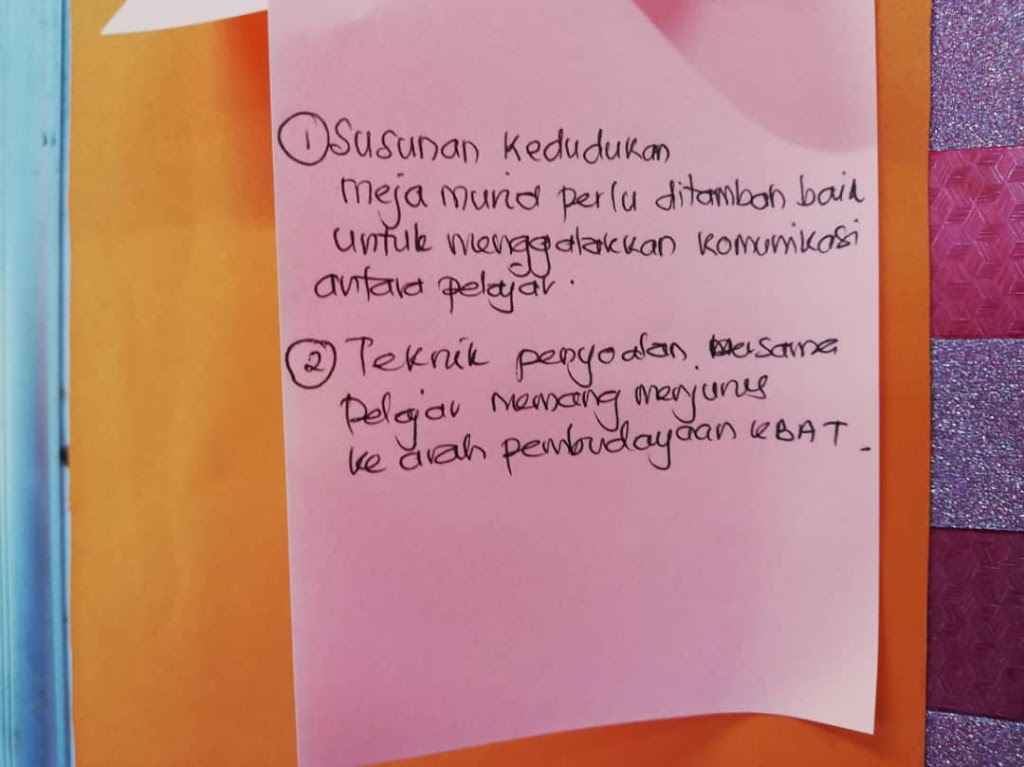 ① Susunan Kedudukan
meja murid perlu ditambah baik
untuk menggalakkan komunikasi
antara pelajar.
② Teknik penyoalan bersama
pelajar memang menjurus
ke arah pembudayaan KBAT.